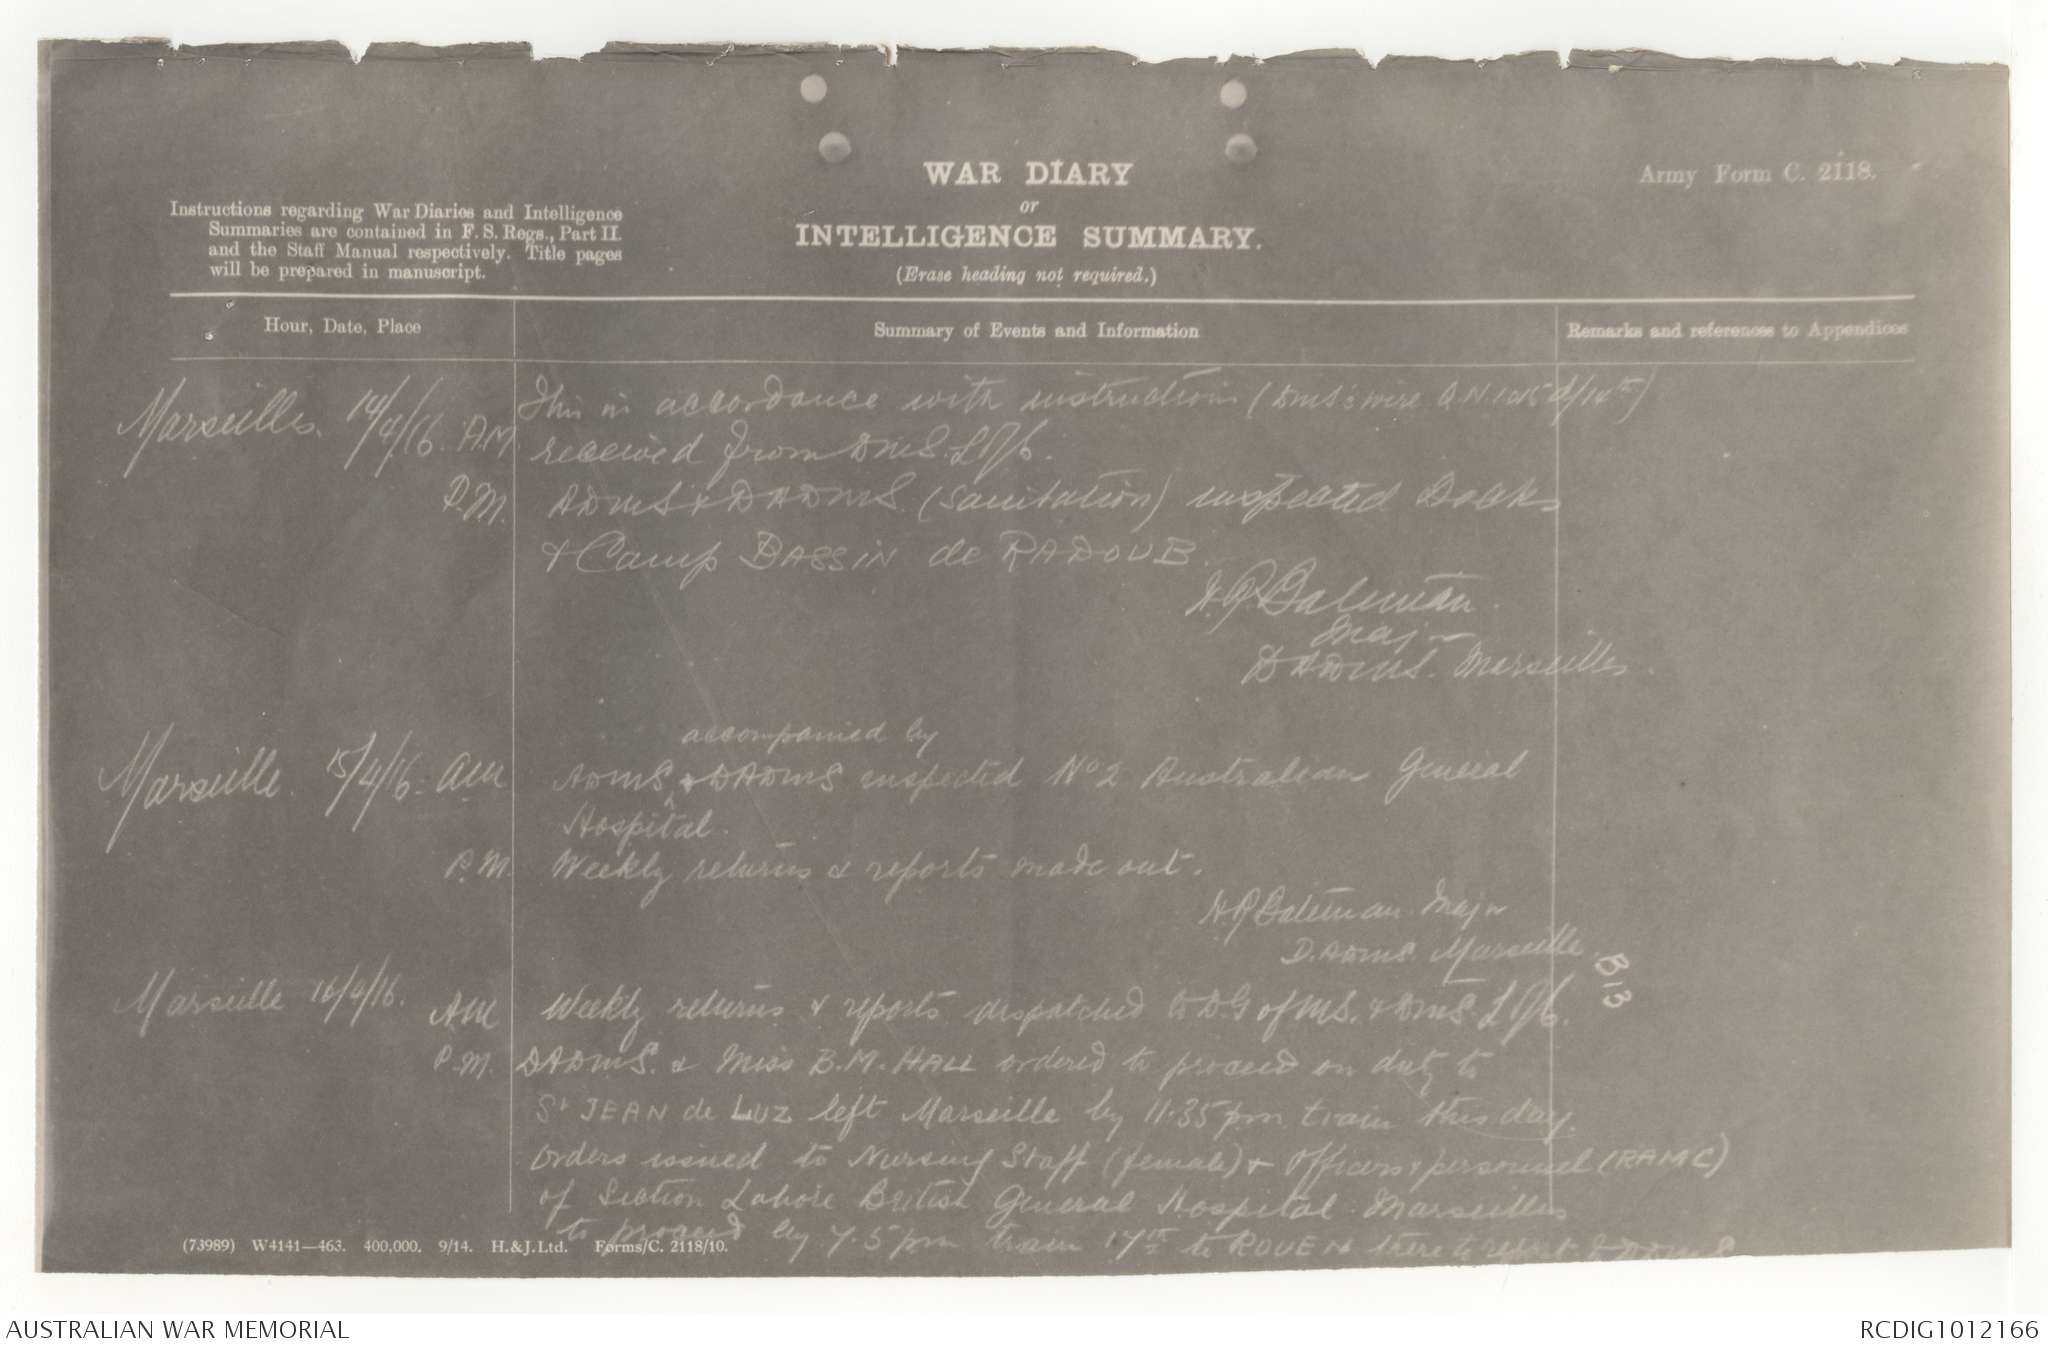 WAR DIARY
or
INTELLIGENCE SUMMARY.
(Erase heading not required.)
Army Form C. 2118.
Instructions regarding War Diaries and Intelligence
Summaries are contained in F. S. Regs., Part II.
and the Staff Manual respectively. Title pages
will be prepared in manuscript.
Hour, Date, Place
Summary of Events and Information
Remarks and references to Appendices
Marseilles. 14/4/16. A.M. This in accordance with instructions (DMS's wire Q.N.
received from DMS. L of C.
P.M. ADMS & DADMS. (Sanitation) inspected Docks
& Camp BASSIN de RADOUB.
H.R. Bateman.
Major
DADMS. Marseilles.
accompanied by
Marseille. 15/4/16. AM ADMS & DADMS inspected No 2 Australian General
Hospital.
P.M. Weekly returns & reports made out.
H R Bateman Major
D.ADMS. Marseille
B13
Marseille 16/4/16. AM Weekly returns & reports despatched to D.G of MS. & DMS. L of C.
P.M. DADMS. & Miss B.M. HALL ordered to proceed on duty to
St JEAN de LUZ left Marseille by 11.35 pm train this day.
Orders issued to Nursing Staff (female) & Officers & personnel (RAMC)
of Section Lahore British General Hospital Marseilles
to proceed by 7.5 pm train 17th to ROUEN there to report to ADMS
(73989) W4141—463. 400,000. 9/14. H.&J.Ltd. Forms/C. 2118/10.
AUSTRALIAN WAR MEMORIAL
RCDIG1012166